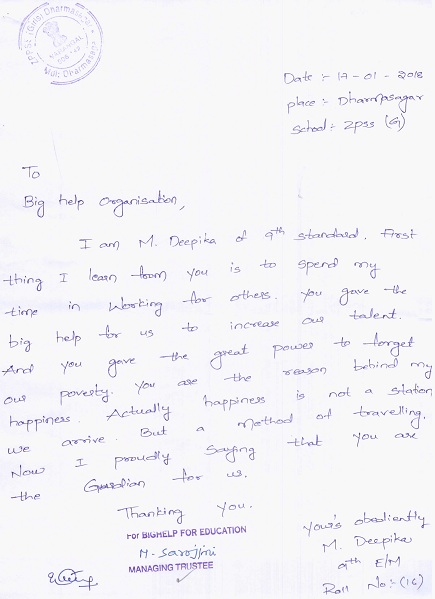 Date :- 17-01-2018
place :- Dharmasagar
School:- Zpss (G)
To
Big help Organisation,
I am M. Deepika of 9th standard. First
thing I learn from you is to spend my
time in working for others. you gave the
big help for us to increase our talent.
And you gave the great power to forget
our poverty. you are the reason behind my
happiness. Actually happiness is not a station
we arrive. But a method of travelling.
Now I proudly saying that you are
the Guardian for us.
Thanking you.
For BIGHELP FOR EDUCATION
M. Sarojini
MANAGING TRUSTEE
your's obediently
M. Deepika
9th E/M
Roll No:-(16)